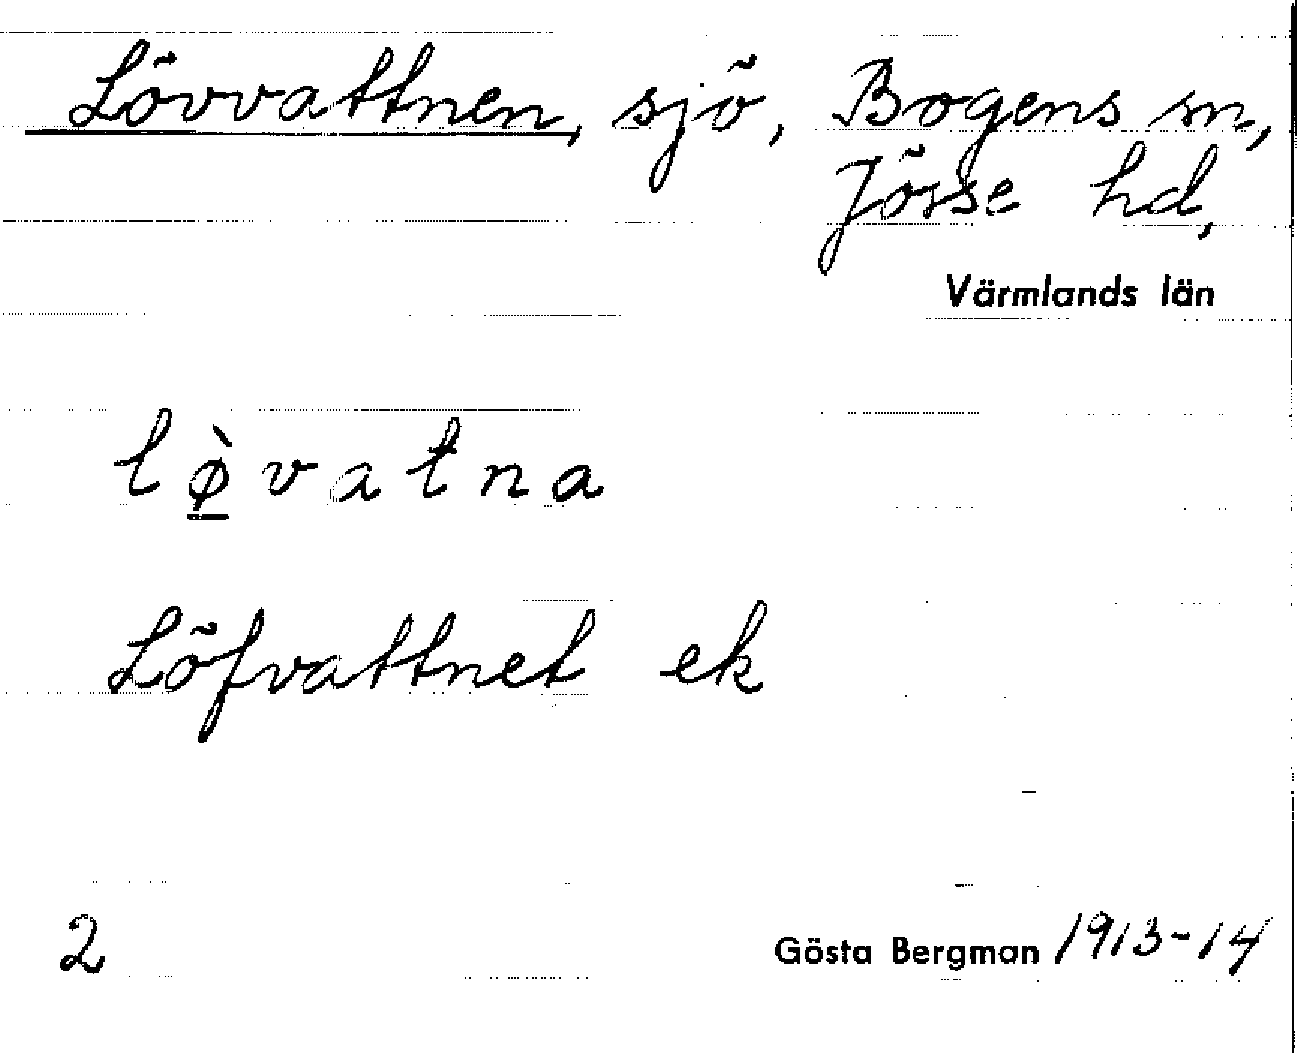 Lövvattnen, sjö, Bogens sn,
Jösse hd,
Värmlands län
lø̱̀vatna
Löfvattnet ek
2
Gösta Bergman 1913-14